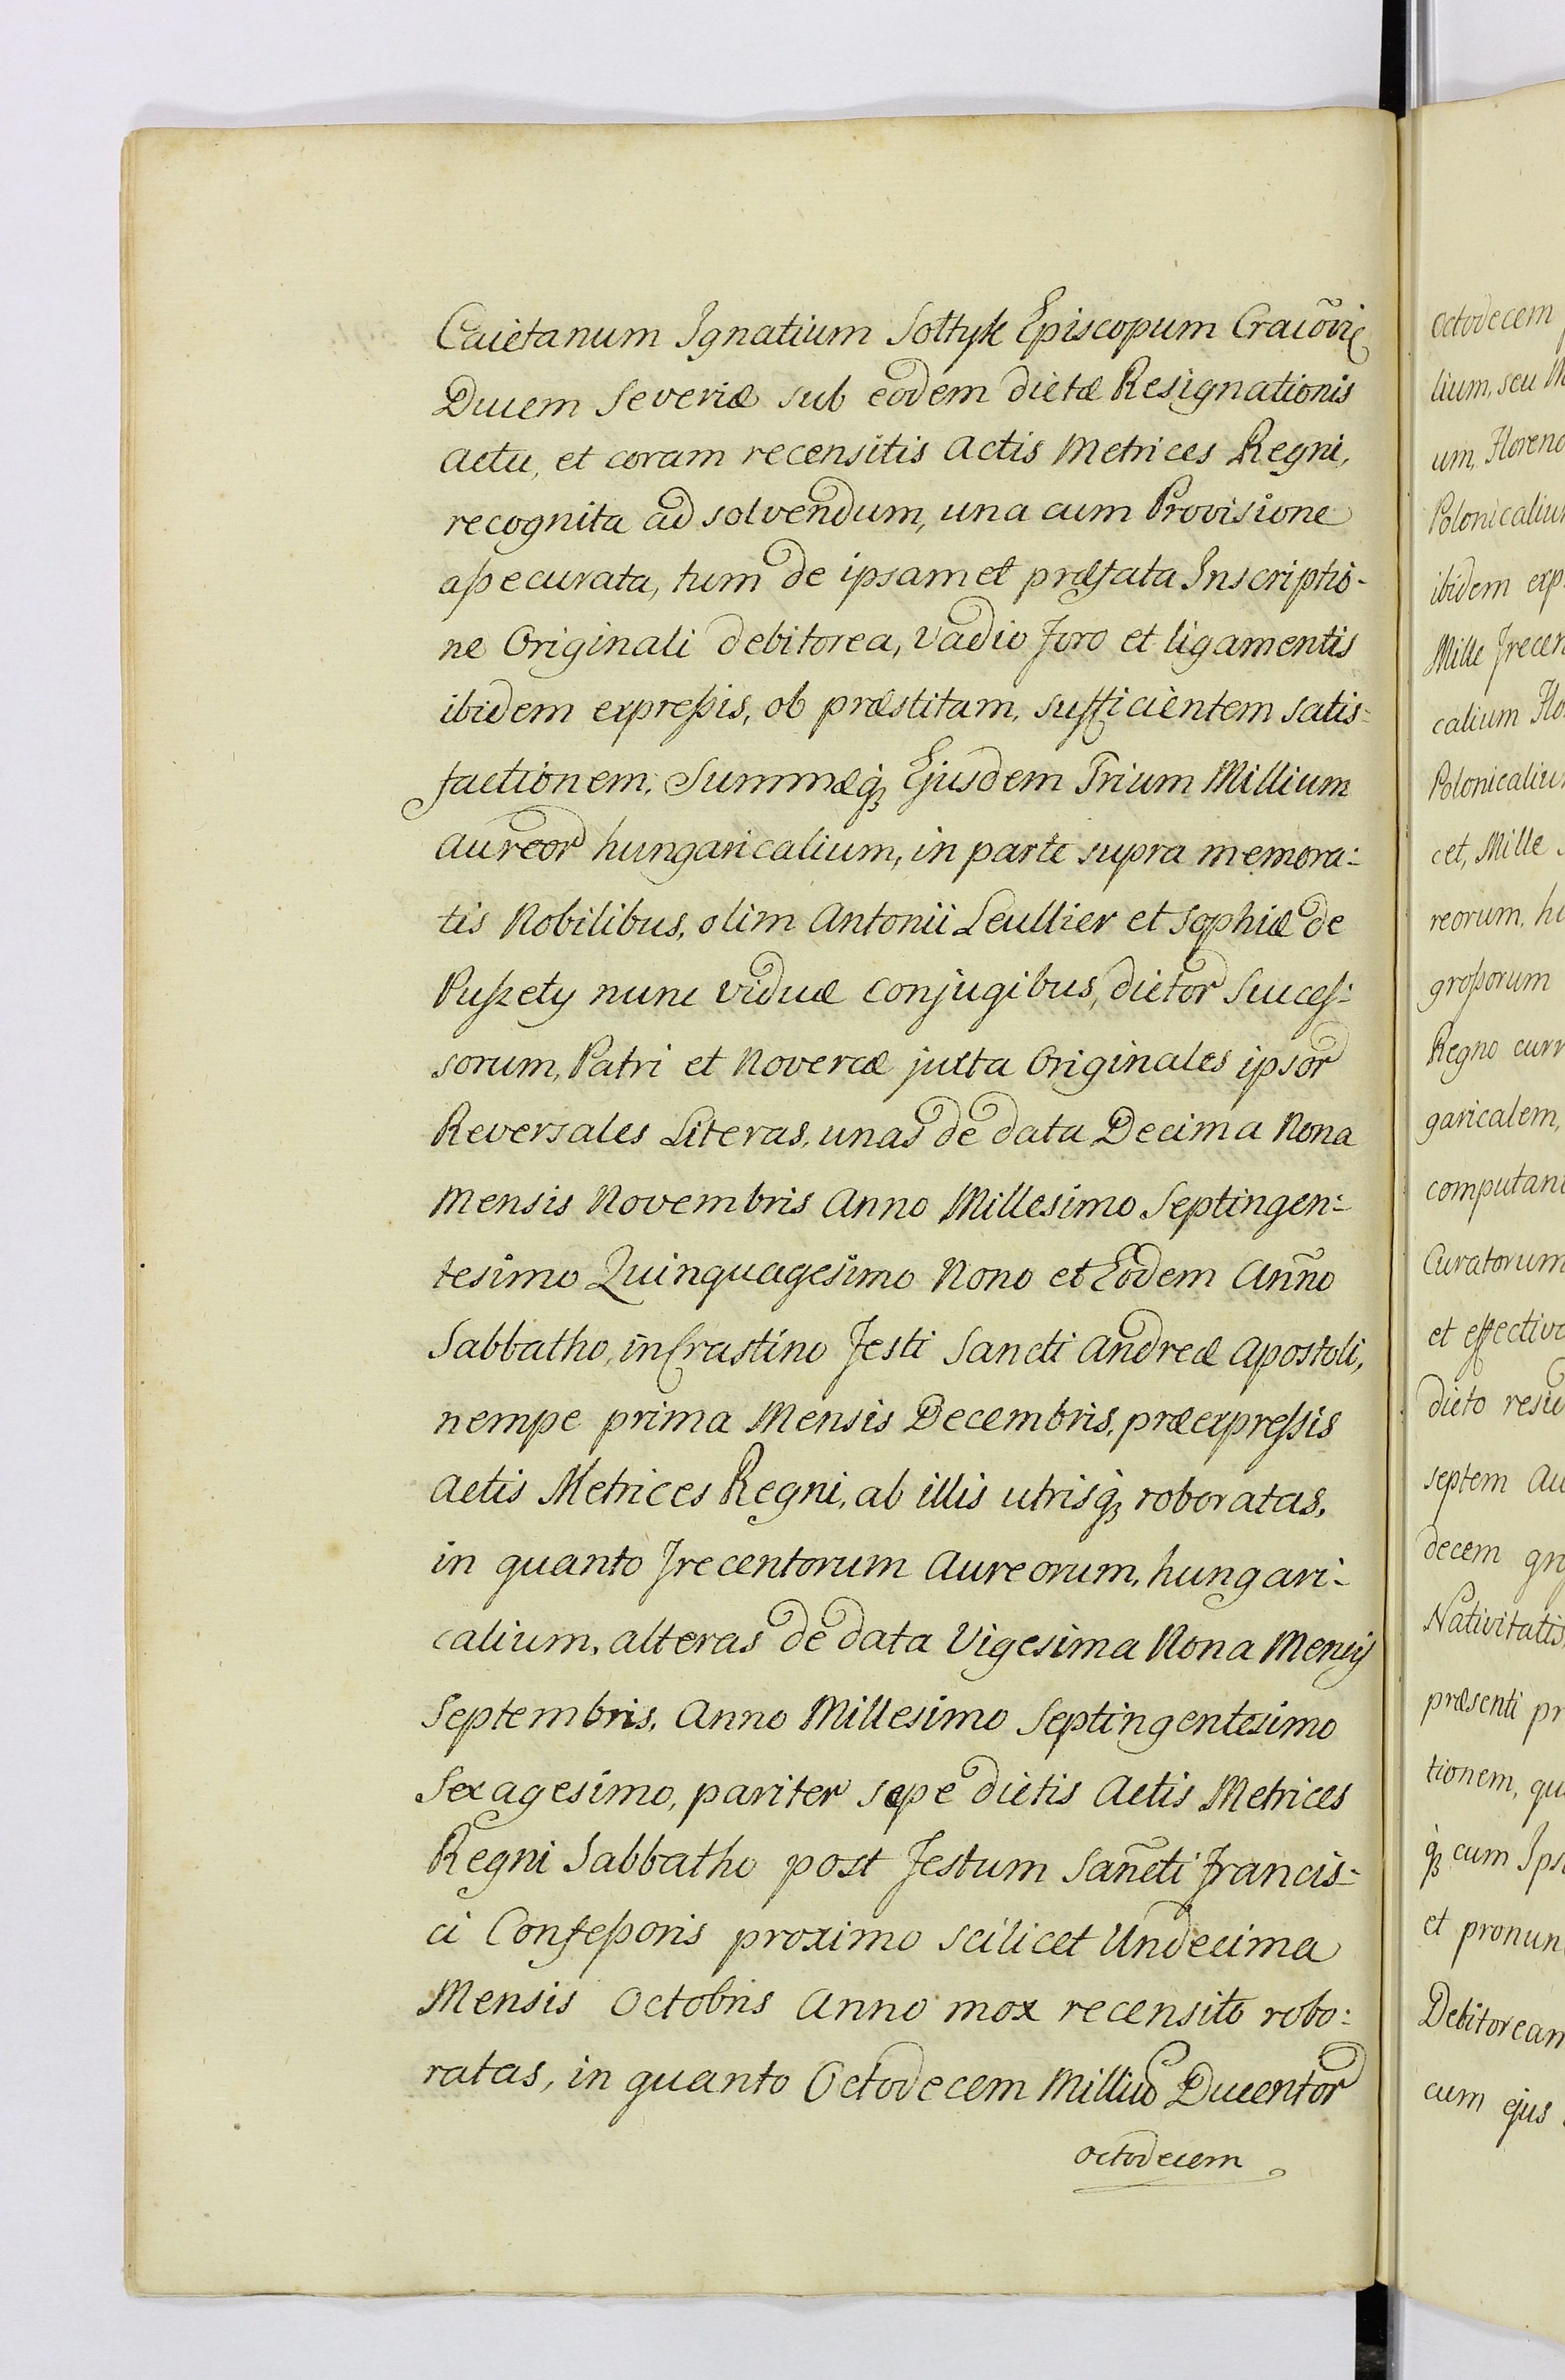 Caietanum Ignatium Sołtyk Episcopum Cracõvię
Ducem Severiæ sub eodem dictæ Resignationis
actu, et coram recensitis Actis Metrices Regni,
recognita ad solvendum, una cum Provisione
aßecurata, tum de ipsamet præfata Inscriptio-
ne Originali debitorea, Vadio foro et ligamentis
ibidem expreßis, ob præstitam, sufficientem satis-
factionem, Summæq́ꝫ Ejusdem Trium Millium
aureor hungaricalium, in parte supra memora-
tis Nobilibus, olim Antonii Leullier et Sophiæ de
Pußety nunc viduæ conjugibus, dictor Succeß-
sorum, Patri et Novercæ juxta Originales ipsor
Reversales Literas, unas de data Decima Nona
Mensis Novembris Anno Millesimo Septingen-
tesimo Quinquagesimo Nono et Eodem Anño
Sabbatho, in Crastino Festi Sancti Andreæ Apostoli,
nempe prima Mensis Decembris, præexpreßis
actis Metrices Regni, ab illis utrisq́ꝫ roboratas,
in quanto Trecentorum Aureorum, hungari-
calium, alteras de data Vigesima Nona Mensis
Septembris, Anno Millesimo Septingentesimo
Sexagesimo, pariter sæpe dictis Actis Metrices
Regni Sabbatho post Festum Sañcti Francis-
ci Confeßoris proximo scilicet Undecima
Mensis Octobris Anno mox recensito robo-
ratas, in quanto Octodecem Milliũ Ducentor
octodecem
octodecem
lium, seu
um, Floreno
Polonicaliu
ibidem exp
Mille Trecen
calium Flo
Polonicaliu
cet, Mille
reorum, hu
großorum
Regno curr
garicalem,
computan
Curatorum
et effectiv
dicto resi
septem Au
decem gro
Nativitatis
præsenti pr
tionem, qu
q́ꝫ cum Ips
et pronun
Debitorean
cum ejus